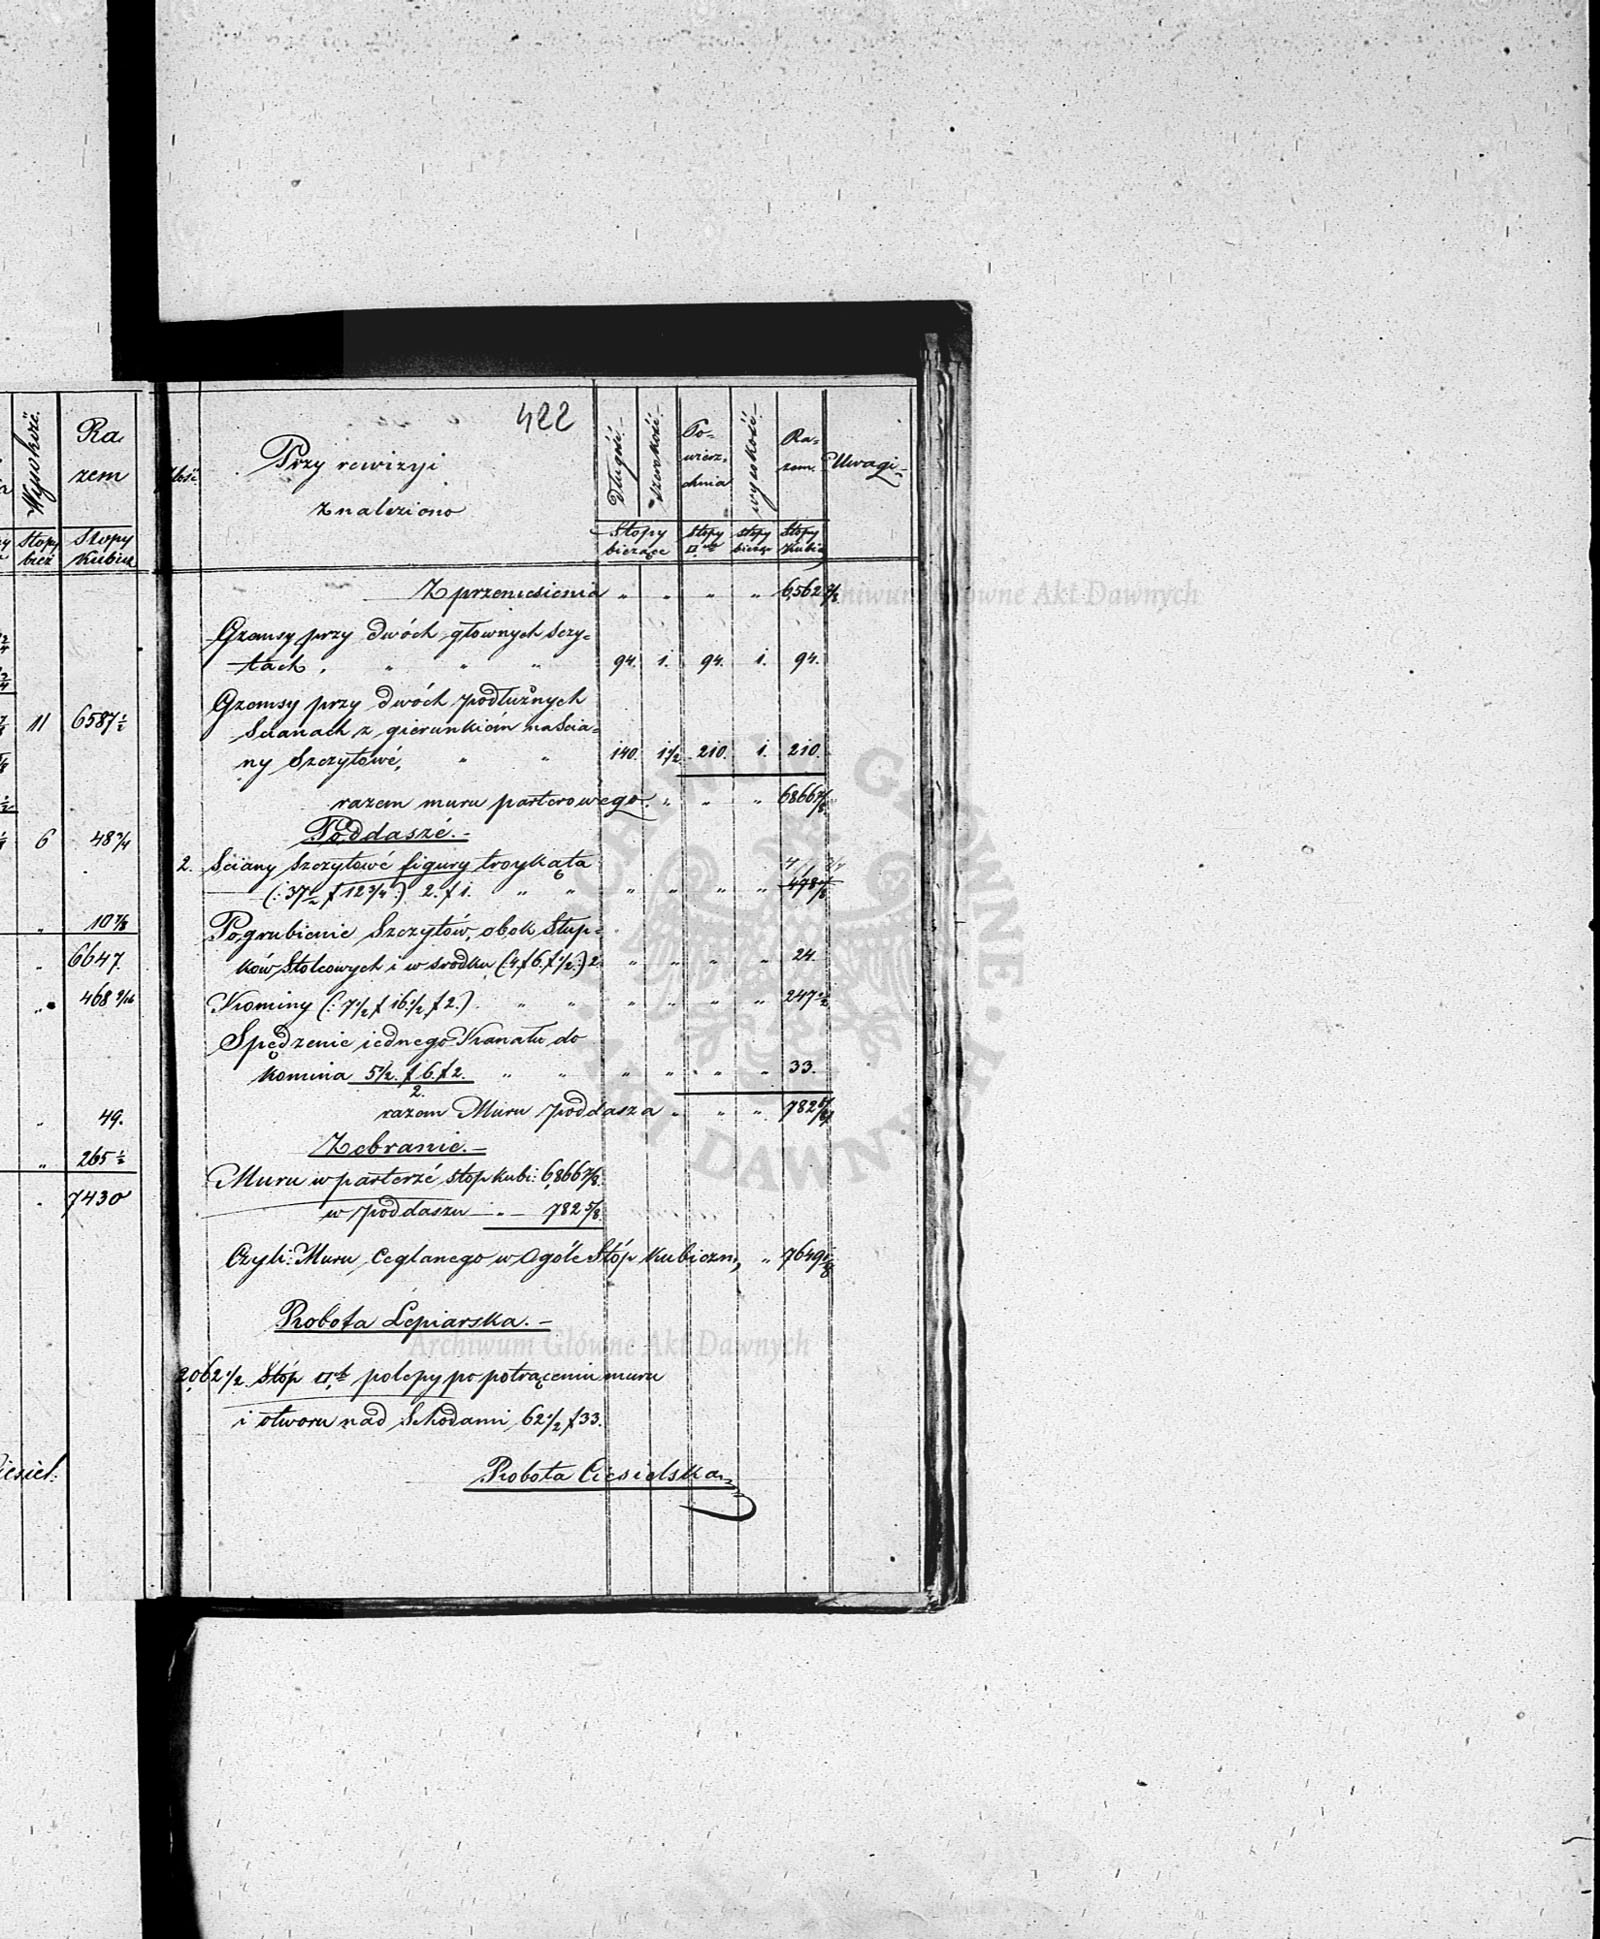 Wysokość.
Ra
zem
Stopy
bież
Stopy
Kubicz
11 6587 1/2
6 48 3/4
" 10 7/8
" 6647.
" 468 9/16
" 49.
" 265 1/2
7430
Ciesiel:
422
Ilość
Przy rewizyi
Znaleziono
Długość.
szerokość.
Po=
wierz=
chnia
wysokość.
Ra=
zem.
Uwagi
Stopy
bieżące
stopy
□ch
stopy
bieżąc
Stopy
Kubicz
Z przeniesienia " " " " 6,562 7/8
Gzemsy przy dwóch głownych Szczy=
tach, " " " 94. 1. 94. 1. 94.
Gzemsy przy dwóch podłużnych
Scianach z gierunkiem na Scia=
ny Szczytowé, " " 140. 1 1/2 210. 1. 210.
razem muru parterowego. " " " 6866 7/8
Poddaszé.-
2. Sciany Szczytowé figury troykąta
(: 37 1/2 f 12 3/4 :) 2. f 1. " " " " " " 478 1/8
Pogrubienie Szczytów, obok Słup=
ków Stolcowych i w srodku (:4 f 6. f 1/2 :) 2 " " " " 24.
Kominy (: 7 1/2 f 16 1/2 f 2.) " " " " " " 247 1/2
Spędzenie iednego Kanału do
Komina 5 1/2. f 6. f 2. " " " " " " 33.
2.
razem Muru poddasza " " " 782 5/8
Zebranie.-
Muru w parterzé stop kubi: 6,866 7/8.
w poddaszu - " - 782 5/8
Czyli: Muru Ceglanego w Ogóle Stóp Kubiczn, " 7649 1/2
Robota Lepiarska.-
2,062 1/2 Stóp □ch polepy po potrąceniu muru
i otworu nad Schodami 62 1/2 f 33.
Robota Ciesielska
Archiwum Główne Akt Dawnych
Archiwum Główne Akt Dawnych
ARCHIWUM GŁÓWNE · AKT DAWNYCH ·